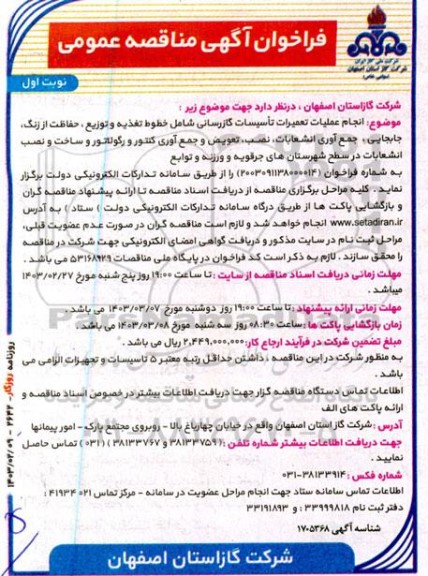 فراخوان آگهی مناقصه عمومی
شرکت ملی گاز ایران
شرکت گاز استان اصفهان
(سهامی خاص)
نوبت اول
شرکت گازاستان اصفهان ، درنظر دارد جهت موضوع زیر :
موضوع: انجام عملیات تعمیرات تأسیسات گازرسانی شامل خطوط تغذیه و توزیع ، حفاظت از زنگ،
جابجایی، جمع آوری انشعابات، نصب، تعویض و جمع آوری کنتور و رگولاتور و ساخت و نصب
انشعابات در سطح شهرستان های جرقویه و ورزنه و توابع
به شماره فراخوان (۲۰۰۳۰۹۱۱۳۸۰۰۰۰۱۴) را از طریق سامانه تدارکات الکترونیکی دولت برگزار
نماید. کلیه مراحل برگزاری مناقصه از دریافت اسناد مناقصه تا ارائه پیشنهاد مناقصه گران
و بازگشایی پاکت ها از طریق درگاه سامانه تدارکات الکترونیکی دولت ( ستاد ) به آدرس
www.setadiran.ir انجام خواهد شد و لازم است مناقصه گران در صورت عدم عضویت قبلی،
مراحل ثبت نام در سایت مذکور و دریافت گواهی امضای الکترونیکی جهت شرکت در مناقصه
را محقق سازند . لازم به ذکر است کد فراخوان در پایگاه ملی مناقصات ۵۳۱۶۸۹۲۹ می باشد .
مهلت زمانی دریافت اسناد مناقصه از سایت : تا ساعت ۱۹:۰۰ روز پنج شنبه مورخ ۱۴۰۳/۰۲/۲۷
میباشد .
مهلت زمانی ارائه پیشنهاد : تا ساعت ۱۹:۰۰ روز دوشنبه مورخ ۱۴۰۳/۰۳/۰۷ می باشد .
زمان بازگشایی پاکت ها : ساعت ۰۸:۳۰ روز سه شنبه مورخ ۱۴۰۳/۰۳/۰۸ می باشد .
مبلغ تضمین شرکت در فرآیند ارجاع کار: ۲,۴۴۹,۰۰۰,۰۰۰ ریال می باشد .
به منظور شرکت در این مناقصه ، داشتن حداقل رتبه معتبر ۵ تاسیسات و تجهیزات الزامی می
باشد .
اطلاعات تماس دستگاه مناقصه گزار جهت دریافت اطلاعات بیشتر در خصوص اسناد مناقصه و
ارائه پاکت های الف
آدرس : شرکت گاز استان اصفهان واقع در خیابان چهارباغ بالا - روبروی مجتمع پارک - امور پیمانها
جهت دریافت اطلاعات بیشتر شماره تلفن :( ۳۸۱۳۳۷۵۹ / ۳۸۱۳۳۷۶۷ ) (۰۳۱ ) تماس حاصل
نمایید .
شماره فکس : ۳۸۱۳۳۹۱۴-۰۳۱
اطلاعات تماس سامانه ستاد جهت انجام مراحل عضویت در سامانه - مرکز تماس ۴۱۹۳۴۰۲۱ :
دفتر ثبت نام ۳۳۹۹۹۸۱۸ : و ۳۳۱۹۱۸۹۳
شناسه آگهی ۱۷۰۵۳۶۸
شرکت گازاستان اصفهان
روزنامه روزگار- ۲۶۴۲ - ۱۴۰۳/۰۲/۰۹